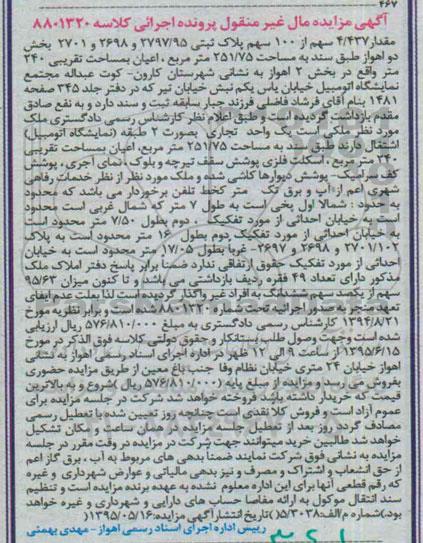 ۴۶۷
آگهی مزایده مال غیر منقول پرونده اجرائی کلاسه ۸۸۰۱۳۲۰
مقدار ۴/۴۳۷ سهم از ۱۰۰ سهم پلاک ثبتی ۲۷۹۷/۹۵ و ۲۶۹۸ و ۲۷۰۱ بخش
دو اهواز طبق سند به مساحت ۲۵۱/۷۵ متر مربع ، اعیان بمساحت تقریبی ۲۴۰
متر واقع در بخش ۲ اهواز به نشانی شهرستان کارون- کوت عبداله مجتمع
نمایشگاه اتومبیل خیابان یاس یکم نبش خیابان تیر که در دفتر جلد ۳۴۵ صفحه
۱۴۸۱ بنام آقای فرشاد فاضلی فرزند جبار سابقه ثبت و سند دارد و به نفع صادق
مقدم بازداشت گردیده است و طبق اعلام نظر کارشناس رسمی دادگستری ملک
مورد نظر ملکی است یک واحد تجاری بصورت ۲ طبقه (نمایشگاه اتومبیل)
اشتغال دارند طبق سند به مساحت ۲۵۱/۷۵ متر مربع، اعیان بمساحت تقریبی
۲۴۰ متر مربع ، اسکلت فلزی پوشش سقف تیرچه و بلوک ، نمای آجری ، پوشش
کف سرامیک- پوشش دیوارها کاشی شده و ملک مورد نظر از نظر خدمات رفاهی
شهری اعم از آب و برق تک متر کخط تلفن برخوردار می باشد که محدود
به حدود : شمالا اول پخی است به طول ۷ متر که شمال غربی است محدود
است به خیابان احداثی از مورد تفکیک ، دوم بطول ۷/۵۰ متر محدود است
به خیابان احداثی از مورد تفکیک دوم بطول ۱۶ متر محدود است به پلاک
۲۷۰۱/۱۰۲ و ۲۶۹۸ و ۲۶۹۷- غربا بطول ۱۷/۰۵ متر محدود است به خیابان
احداثی از مورد تفکیک حقوق ارتفاقی ندارد ضمنا برابر پاسخ دفتر املاک ملک
مذکور دارای تعداد ۴۹ فقره ردیف بازداشتی می باشد و تا کنون میزان ۹۵/۶۳
سهم از یکصد سهم ششدانگ به افراد غیر واگذار گردیده است لذا بعلت عدم ایفای
تعهد منجر به صدور اجرائیه تحت شماره ۸۸۰۱۳۲۰ شده است و برابر نظریه مورخ
۱۳۹۴/۸/۲۱ کارشناس رسمی دادگستری به مبلغ ۵۷۶/۸۱۰/۰۰۰ ریال ارزیابی
شده است وجهت وصول طلب بستانکار و حقوق دولتی کلاسه فوق الذکر در مورخ
۱۳۹۵/۶/۱۵ از ساعت ۹ الی ۱۲ ظهر در اداره اجرای اسناد رسمی اهواز به نشانی
اهواز خیابان ۲۴ متری خیابان نظام وفا جنب باغ معین از طریق مزایده حضوری
بفروش می رسد و مزایده از مبلغ پایه (۵۷۶/۸۱۰/۰۰۰ ریال )شروع و به بالاترین
قیمت که خریدار داشته باشد فروخته خواهد شد شرکت در جلسه مزایده برای
عموم آزاد است و فروش کلا نقدی است چنانچه روز تعیین شده با تعطیل رسمی
مصادف گردد روز بعد از تعطیل جلسه مزایده در همان ساعت و مکان تشکیل
خواهد شد طالبین خرید میتوانند جهت شرکت در مزایده در وقت مقرر در جلسه
مزایده به نشانی فوق شرکت نمایند ضمنا بدهی های مربوط به آب ، برق گاز اعم
از حق انشعاب و اشتراک و مصرف و نیز بدهی مالیاتی و عوارض شهرداری و غیره
که رقم قطعی آنها برای این اداره معلوم نشده به عهده برنده مزایده است و تنظیم
سند انتقال موکول به ارائه مفاصا حساب های دارایی و شهرداری و غیره خواهد
بود.)شماره م/الف:۵/۳۰۳۸(تاریخ انتشار آگهی مزایده:۱۳۹۵/۰۵/۱۶(
رییس اداره اجرای اسناد رسمی اهواز - مهدی بهمئی